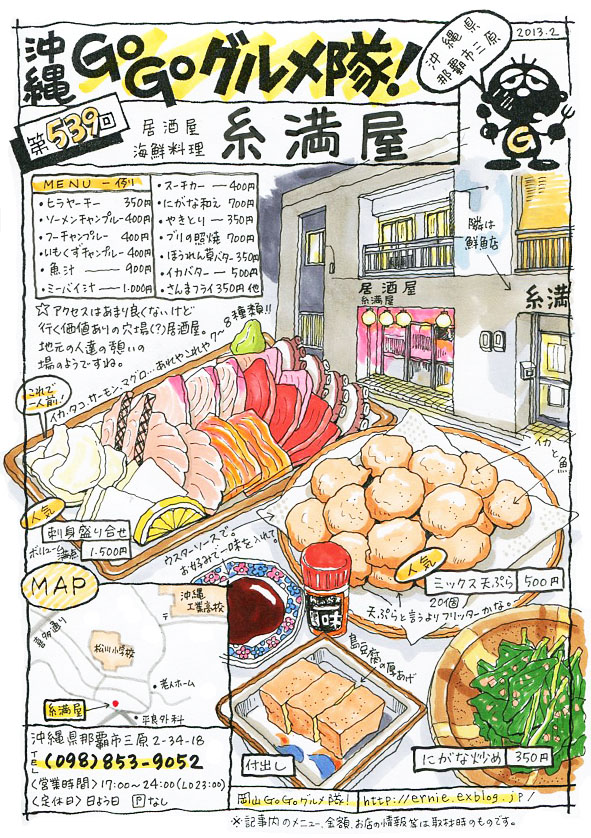 沖縄 GoGoグルメ隊!
沖縄県
那覇市三原
2013.2
G
第539回
居酒屋
海鮮料理
糸満屋
MENU 一例
・ヒラヤーチー 350円
・ソーメンチャンプルー 400円
・フーチャンプルー 400円
・いもくずチャンプルー 400円
・魚汁 ── 900円
・ミーバイ汁 ── 1.000円
・スーチカー ── 400円
・にがな和え 700円
・やきとり ── 350円
・ブリの照焼 700円
・ほうれん草バター 350円
・イカバター ── 500円
・さんまフライ 350円 他
☆アクセスはあまり良くないけど
行く価値ありの穴場(?)居酒屋。
地元の人達の憩いの
場のようですね。
隣は
鮮魚店
居酒屋
糸満屋
糸満
これで
一人前!
イカ、タコ、サーモン、マグロ…あれやこれや7〜8種類!!
人気
刺身盛り合せ
ボリューム満点
1.500円
ウスターソースで。
お好みで一味を入れて
一味
イカと魚
人気
ミックス天ぷら 500円
20個
天ぷらと言うよりフリッターかな。
MAP
沖縄
工業高校
〒
喜多通り
松川小学校
・老人ホーム
糸満屋
・平良外科
島豆腐の厚あげ
付出し
にがな炒め 350円
沖縄県那覇市三原2-34-18
TEL (098)853-9052
〈営業時間〉17:00〜24:00(LO23:00)
〈定休日〉日よう日 Pなし
岡山GoGoグルメ隊! http://ernie.exblog.jp/
※記事内のメニュー、金額、お店の情報等は取材時のものです。